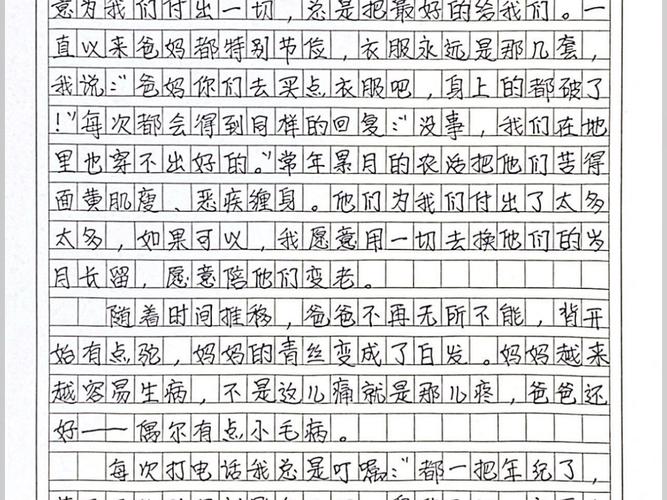 意为我们付出一切，总是把最好的给我们。一
直以来爸妈都特别节俭，衣服永远是那几套，
我说：“爸妈你们去买点衣服吧，身上的都破了
！”每次都会得到同样的回复：“没事，我们在地
里也穿不出好的。”常年累月的农活把他们苦得
面黄肌瘦、恶疾缠身。他们为我们付出了太多
太多，如果可以，我愿意用一切去换他们的岁
月长留，愿意陪他们变老。
随着时间推移，爸爸不再无所不能，背开
始有点驼，妈妈的青丝变成了白发。妈妈越来
越容易生病，不是这儿痛就是那儿疼，爸爸还
好——偶尔有点小毛病。
每次打电话我总是叮嘱：“都一把年纪了，